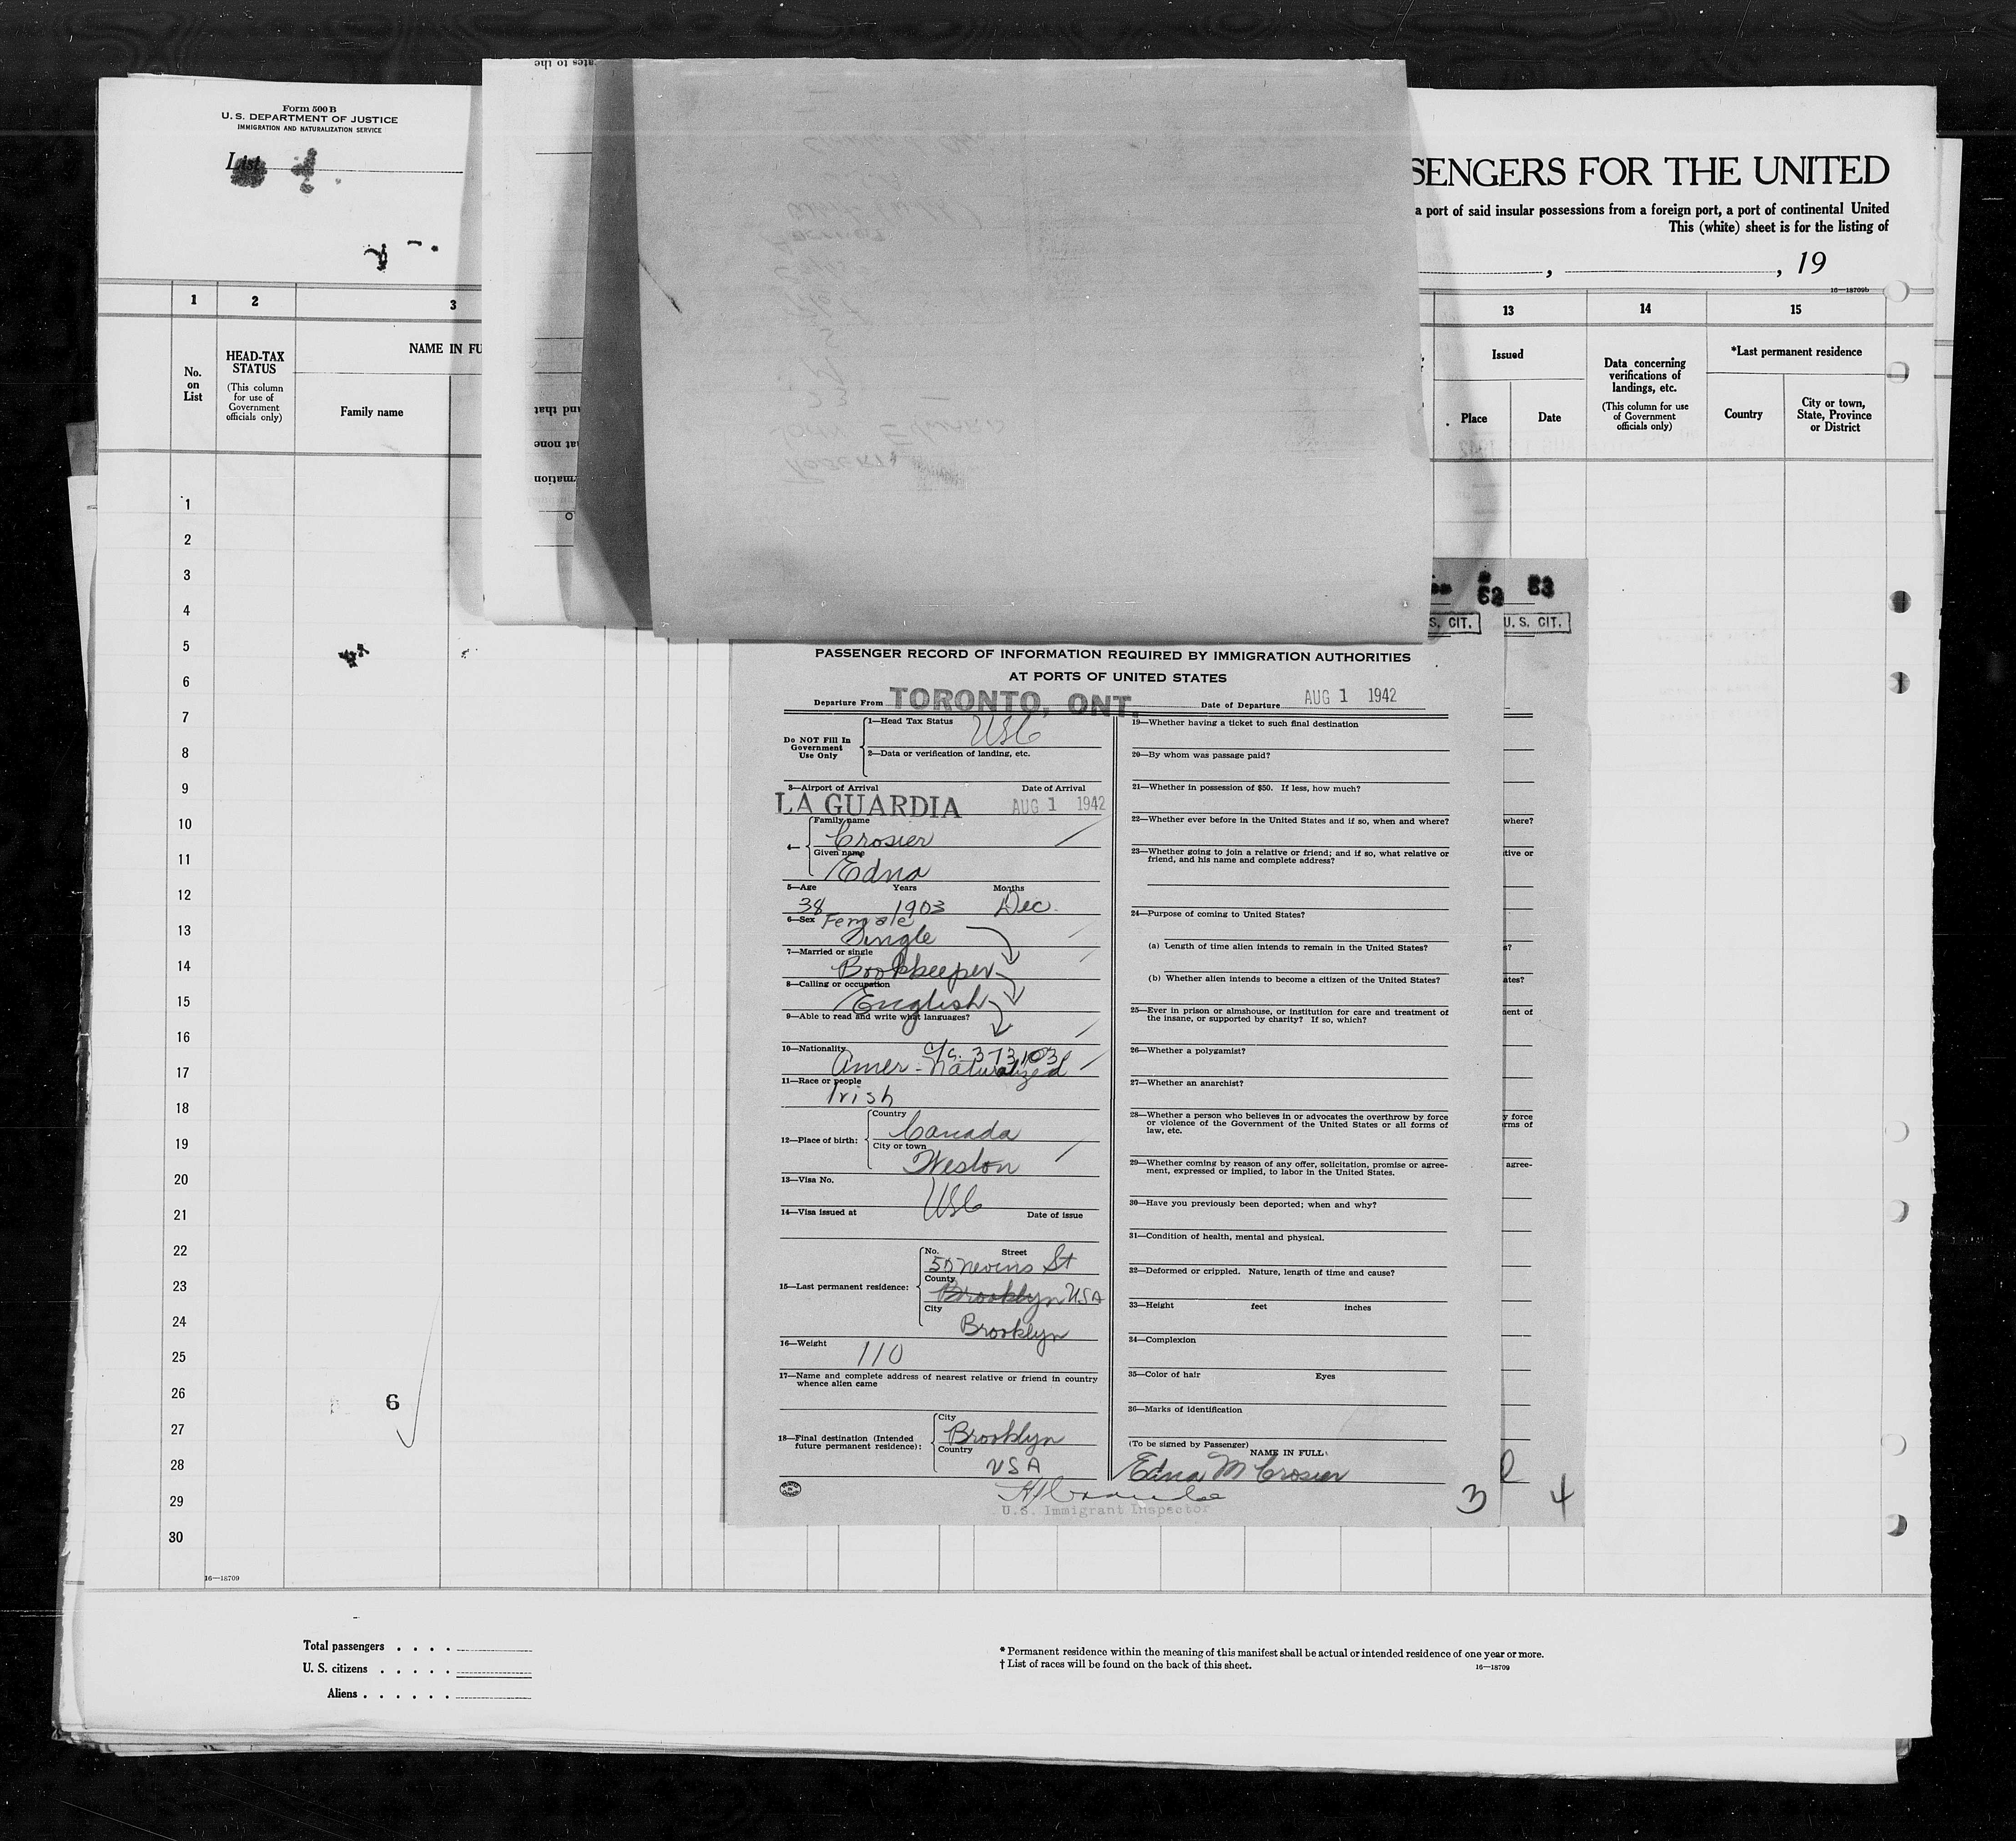 Form 500 B
U. S. DEPARTMENT OF JUSTICE
IMMIGRATION AND NATURALIZATION SERVICE
List
SENGERS FOR THE UNITED
a port of said insular possessions from a foreign port, a port of continental United
This (white) sheet is for the listing of
, , 19
16—18709b
1 2 3 13 14 15
No. on List
HEAD-TAX STATUS
(This column for use of Government officials only)
NAME IN FU
Family name
Issued
Place Date
Data concerning verifications of landings, etc.
(This column for use of Government officials only)
*Last permanent residence
Country
City or town, State, Province or District
ates to the
and that
at none
rmation
1
2
3
4
5
6
7
8
9
10
11
12
13
14
15
16
17
18
19
20
21
22
23
24
25
26
27
28
29
30
6
53
S. CIT. U. S. CIT.
PASSENGER RECORD OF INFORMATION REQUIRED BY IMMIGRATION AUTHORITIES
AT PORTS OF UNITED STATES
Departure From TORONTO, ONT. Date of Departure AUG 1 1942
Do NOT Fill In Government Use Only
1—Head Tax Status USC
2—Data or verification of landing, etc.
3—Airport of Arrival Date of Arrival
LA GUARDIA AUG 1 1942
4— Family name
Crosier
Given name
Edna
5—Age Years Months
38 1903 Dec.
6—Sex Female
Single
7—Married or single
Bookkeeper
8—Calling or occupation
English
9—Able to read and write what languages?
10—Nationality
Amer - Naturalized
11—Race or people
Irish
12—Place of birth:
Country
Canada
City or town
Weston
13—Visa No.
USC
14—Visa issued at Date of issue
15—Last permanent residence:
No. Street
50 Nevins St
County
Brooklyn USA
City
Brooklyn
16—Weight
110
17—Name and complete address of nearest relative or friend in country whence alien came
18—Final destination (Intended future permanent residence):
City
Brooklyn
Country
USA
U.S. Immigrant Inspector
19—Whether having a ticket to such final destination
20—By whom was passage paid?
21—Whether in possession of $50. If less, how much?
22—Whether ever before in the United States and if so, when and where?
23—Whether going to join a relative or friend; and if so, what relative or
friend, and his name and complete address?
24—Purpose of coming to United States?
(a) Length of time alien intends to remain in the United States?
(b) Whether alien intends to become a citizen of the United States?
25—Ever in prison or almshouse, or institution for care and treatment of
the insane, or supported by charity? If so, which?
26—Whether a polygamist?
27—Whether an anarchist?
28—Whether a person who believes in or advocates the overthrow by force
or violence of the Government of the United States or all forms of
law, etc.
29—Whether coming by reason of any offer, solicitation, promise or agree-
ment, expressed or implied, to labor in the United States.
30—Have you previously been deported; when and why?
31—Condition of health, mental and physical.
32—Deformed or crippled. Nature, length of time and cause?
33—Height feet inches
34—Complexion
35—Color of hair Eyes
36—Marks of identification
(To be signed by Passenger)
NAME IN FULL
Edna M Crosier
3 4
where?
tive or
s?
ates?
ent of
y force
rms of
agree-
16—18709
Total passengers . . . .
U. S. citizens . . . . .
Aliens . . . . . .
* Permanent residence within the meaning of this manifest shall be actual or intended residence of one year or more.
† List of races will be found on the back of this sheet. 16—18709